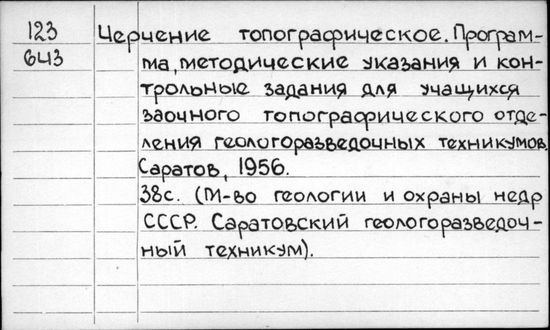 123 Черчение топографическое. Програм-
643 ма, методические указания и кон-
трольные задания для учащихся
заочного топографического отде-
ления геологоразведочных техникумов.
Саратов, 1956.
38с. (М-во геологии и охраны недр
СССР. Саратовский геологоразведоч-
ный техникум).